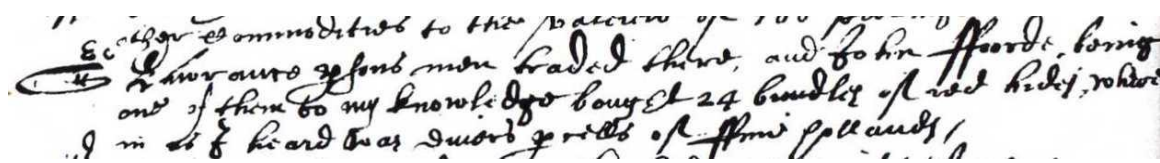 other Commodities to the
& Lawrance psons men traded there, and John fforde, being
one of them to my knowledge bought 24 bundles of red hides, where
in as I heard was divers pcells of ffine hollands /